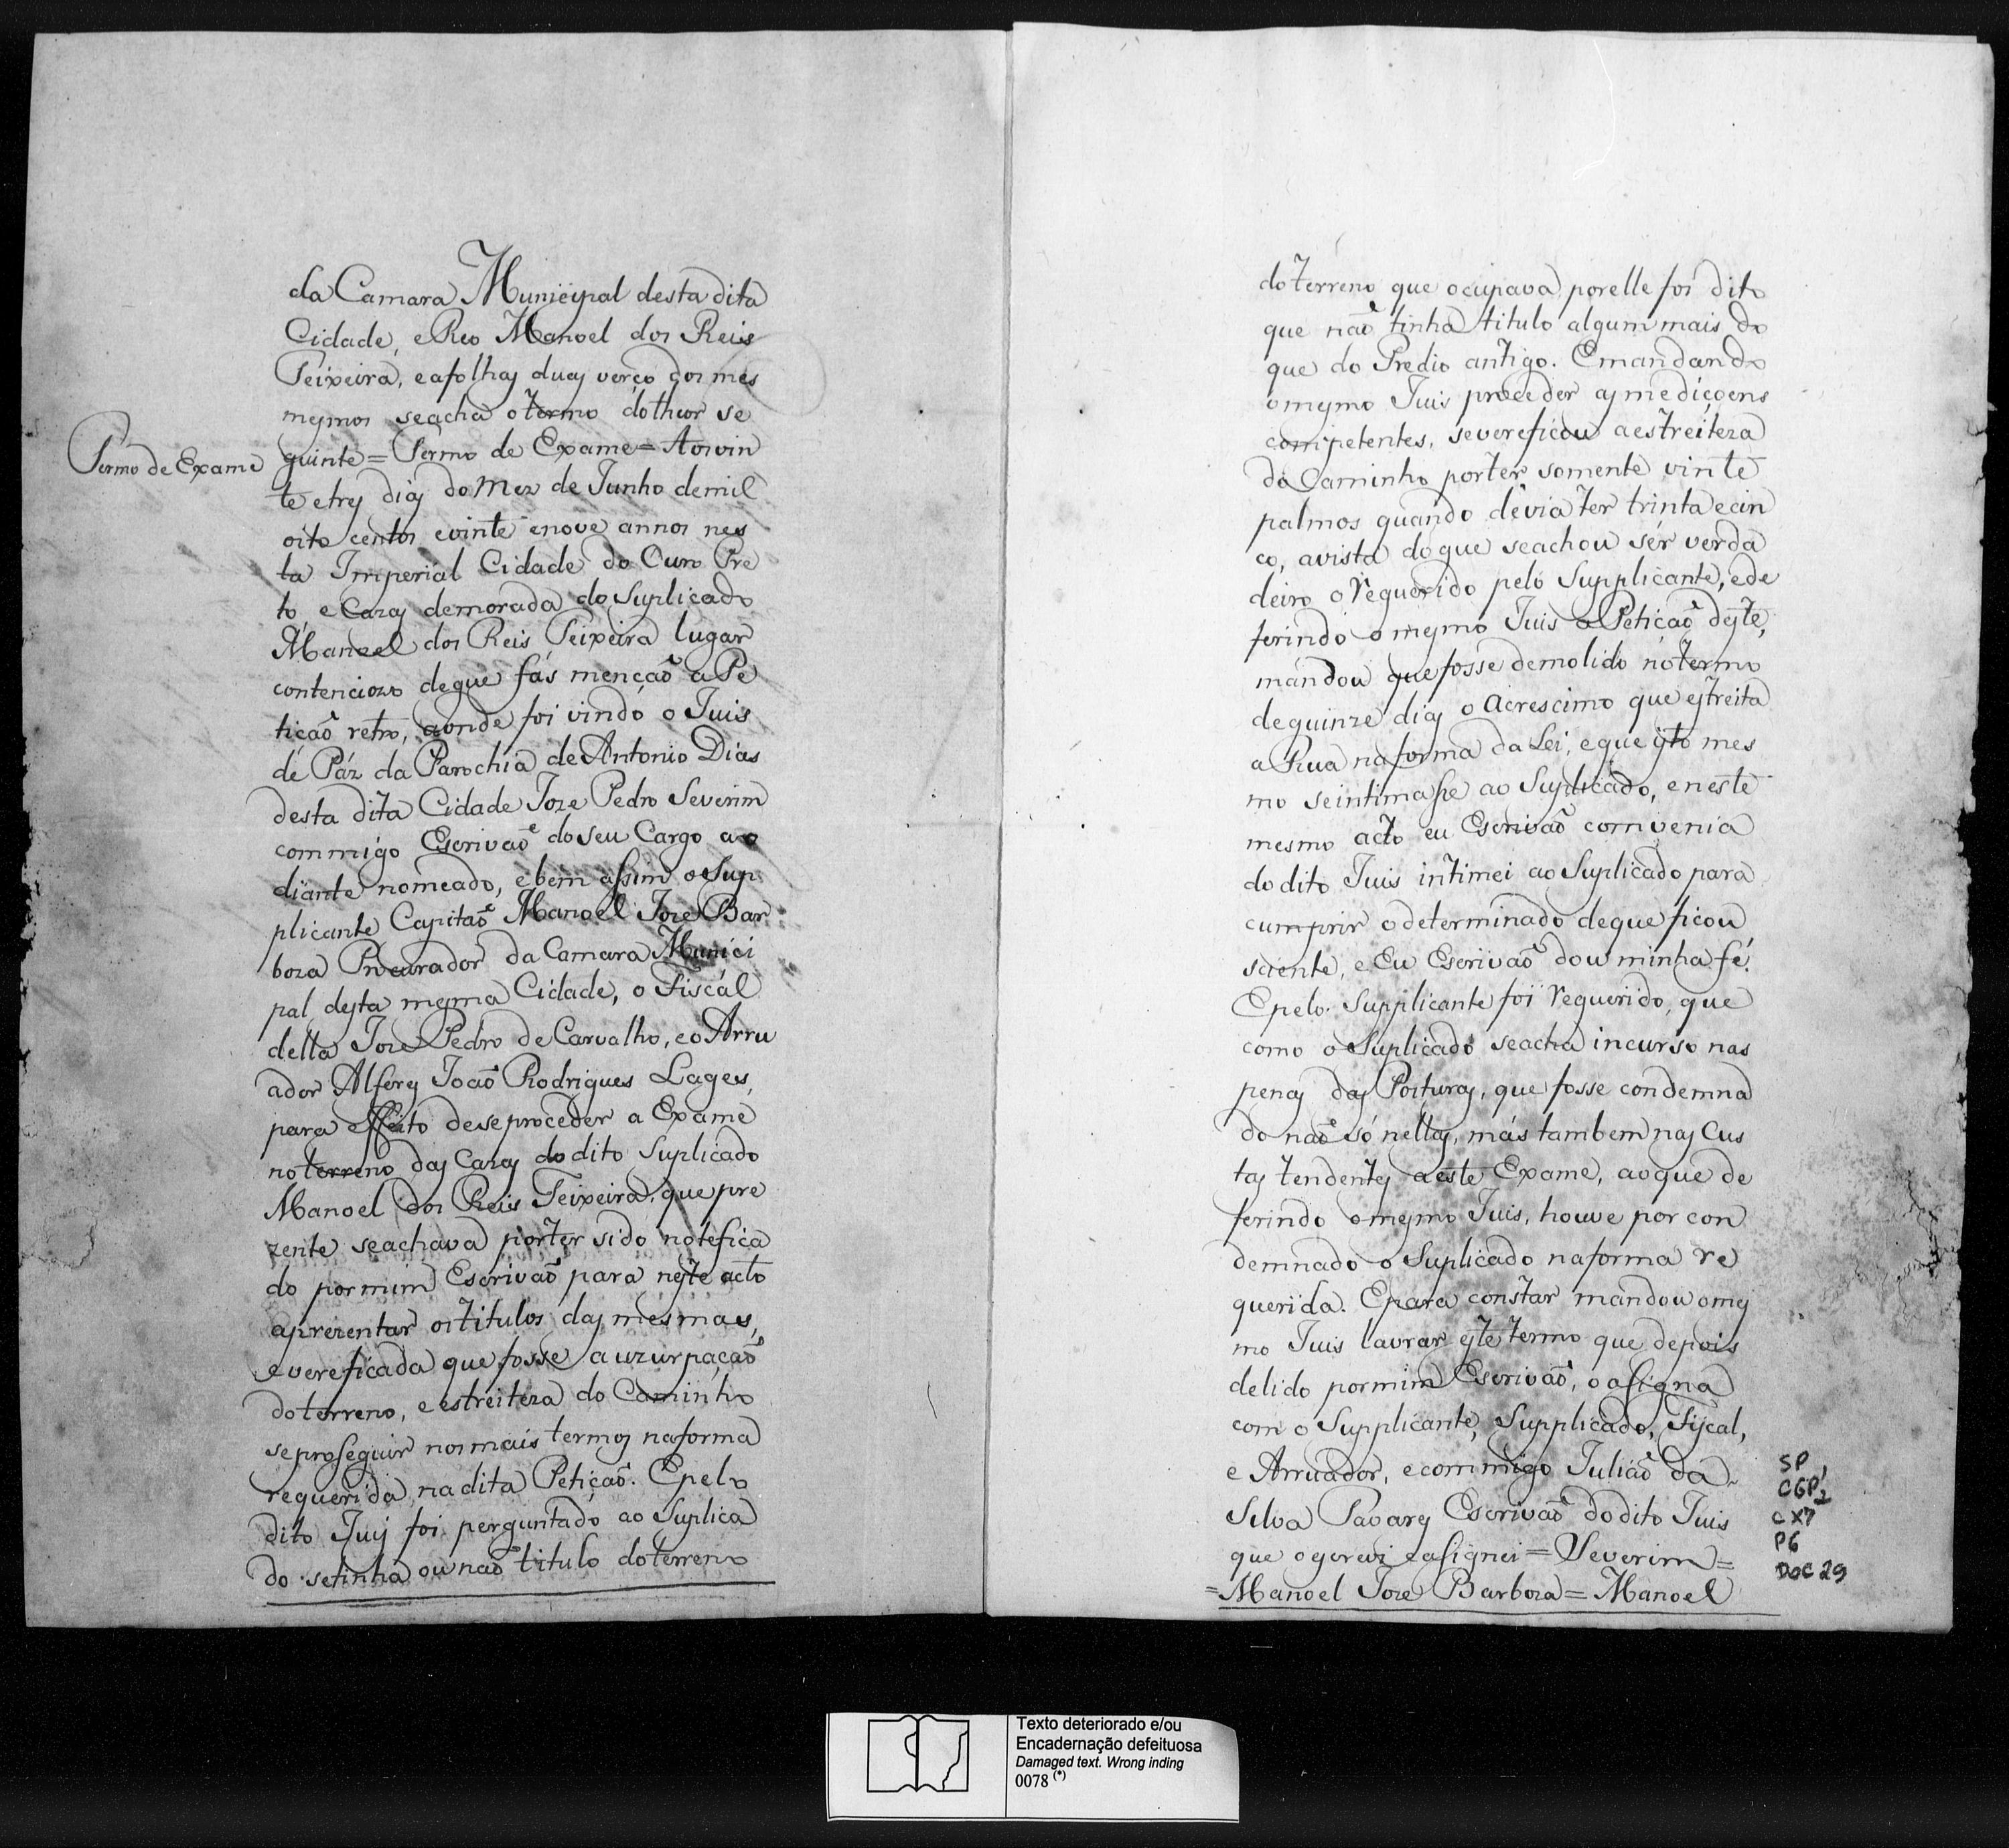 da Camara Municipal desta dita
Cidade, e Reo Manoel dos Reis
Teixeira, e afolhas duas verço dos mes
mesmos seacha o termo dotheor se
Termo de Exame
guinte = Termo de Exame = Aos vin
te etres dias do Mez de Junho demil
oito centos evinte enove annos nes
ta Imperial Cidade do Ouro Pre
to, e Cazas demorada do Suplicado
Manoel dos Reis Teixeira lugar
contenciozo deque fás menção a Pe
tição retro, aonde foi vindo o Juis
de Páz da Parochia de Antonio Dias
desta dita Cidade Joze Pedro Severim
commigo Escrivaõ do seu Cargo ao
diante nomeado, e bem assim o Sup
plicante Capitaõ Manoel Joze Bar
boza Procurador da Camara Munici
pal desta mesma Cidade, o Fiscál
della Joze Pedro de Carvalho, eo Arru
ador Alferes Joaõ Rodrigues Lages,
para effeito deseproceder a Exame
noterreno das Cazas dodito Suplicado
Manoel dos Reis Teixeira, que pre
zente seachava porter sido notefica
do pormim Escrivaõ para neste acto
aprezentar ostitulos das mesmas,
evereficada que fosse a uzurpaçaõ
doterreno, e estreiteza do Caminho
seproseguir nos mais termos naforma
requerida na dita Petiçaõ. Epelo
dito Juis foi perguntado ao Suplica
do setinha ou naõ titulo doterreno
doterreno que ocupava, porelle foi dito
que naõ tinha titulo algum mais do
que do Predio antigo. Emandando
omesmo Juis proceder as mediçoens
competentes, severeficou aestreiteza
do Caminho porter somente vinte
palmos quando devia ter trinta ecin
co, avista doque seachou sér verda
deiro o requerido pelo Supplicante, ede
ferindo o mesmo Juis a Petiçaõ deste,
mandou que fosse demolido notermo
dequinze dias o acrescimo que estreita
a Rua naforma da Lei, e que isto mes
mo seintimasse ao Suplicado, e neste
mesmo acto eu Escrivaõ comvenia
do dito Juis intimei ao Suplicado para
cumprir o determinado deque ficou
sciente, e Eu Escrivaõ dou minha fé.
Epelo Supplicante foi requerido, que
como o Suplicado seacha incurso nas
penas das Posturas, que fosse condemna
do naõ só nellas, más tambem nas Cus
tas tendentes a este Exame, ao que de
ferindo o mesmo Juis, houve por con
demnado o Suplicado naforma re
querida. Epara constar mandou omes
mo Juis lavrar este termo que depois
delido pormim Escrivaõ, o assigna
com o Supplicante, Supplicado, Fiscal,
e Arruador, ecommigo Juliaõ da
Silva Tavares Escrivaõ dodito Juis
que o escrevi e assignei = Severim =
= Manoel Joze Barboza = Manoel
SP
CGP 1
2
CX7
P6
DOC 29
Texto deteriorado e/ou
Encadernação defeituosa
Damaged text. Wrong inding
0078 (*)